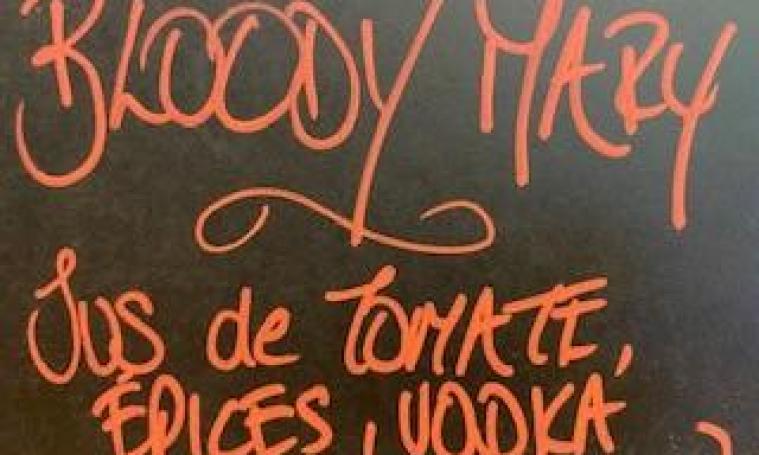 BLOODY MARY
Jus de TOMATE,
ÉPICES, VODKA